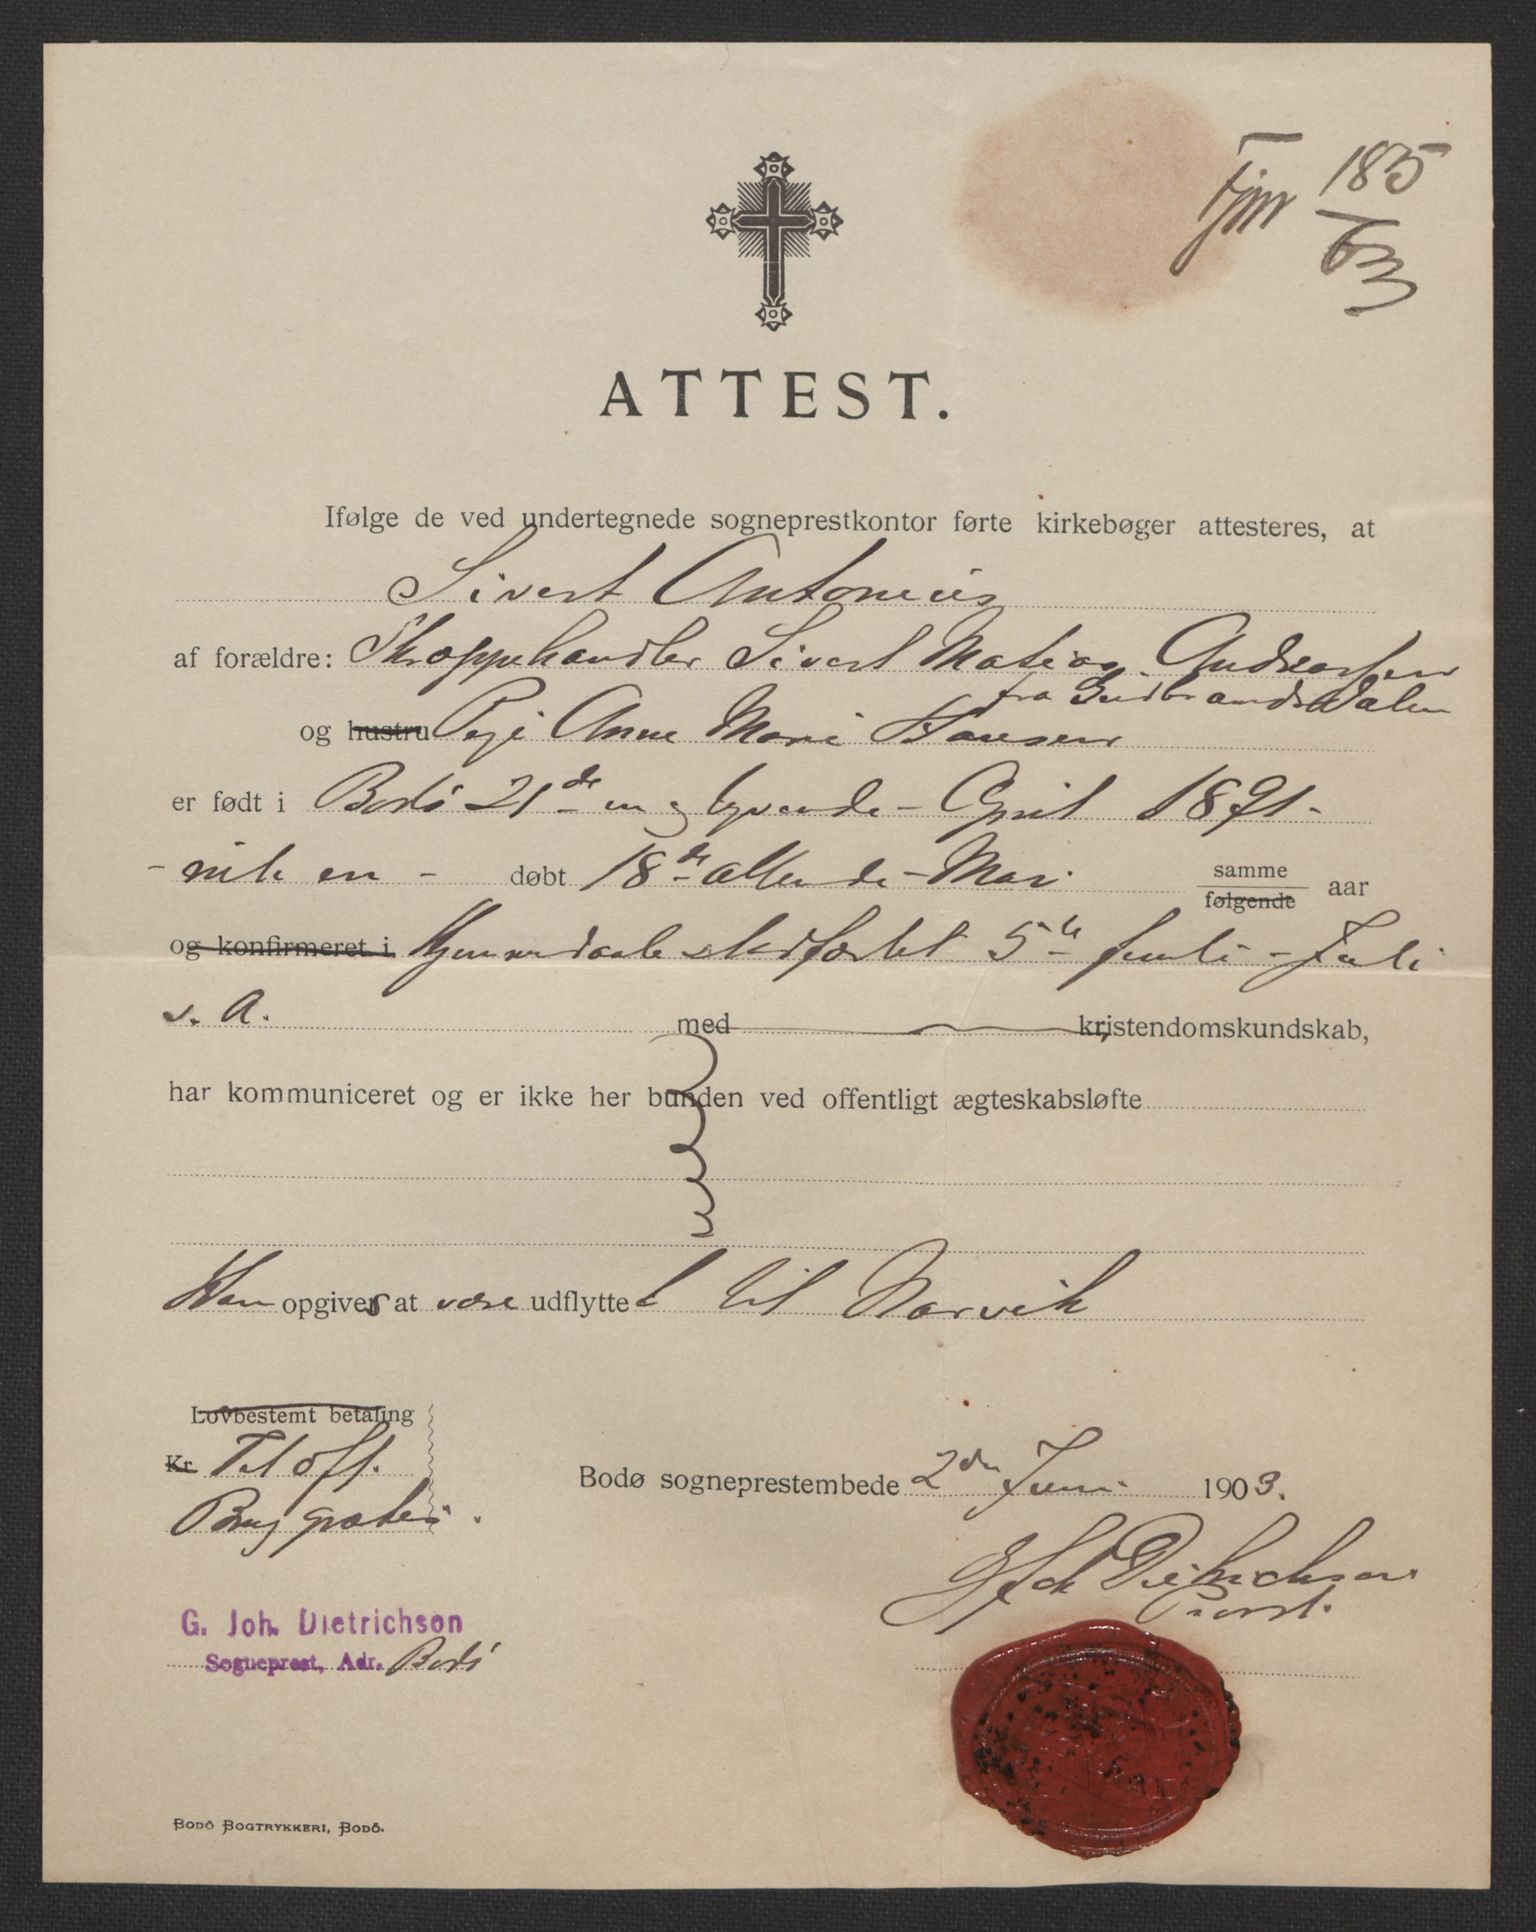 Fjnr 185
03
ATTEST.
Ifølge de ved undertegnede sogneprestkontor førte kirkebøger attesteres, at
Sivert Antonius
af forældre: Skræppehandler Sivert Matias Andreassen
fra Gudbrandsdalen
og hustru Pige Anne Marie Hansen
er født i Bodø 21de en og tyvende - April 1891 -
- nitti en - døbt 18de attende - Mai samme
følgende aar
og konfirmeret i Hjemmedaab stadfæstet 5te femte - Juli
s. A. med kristendomskundskab,
har kommuniceret og er ikke her bunden ved offentligt ægteskabsløfte
Han opgives at være udflyttet til Narvik
Lovbestemt betaling
Kr. Til off.
Brug gratis.
Bodø sogneprestembede 2den Juni 1903.
G Joh Dietrichson
Provst.
G. Joh. Dietrichson
Sogneprest, Adr. Bodø
BODØ BOGTRYKKERI, BODØ.